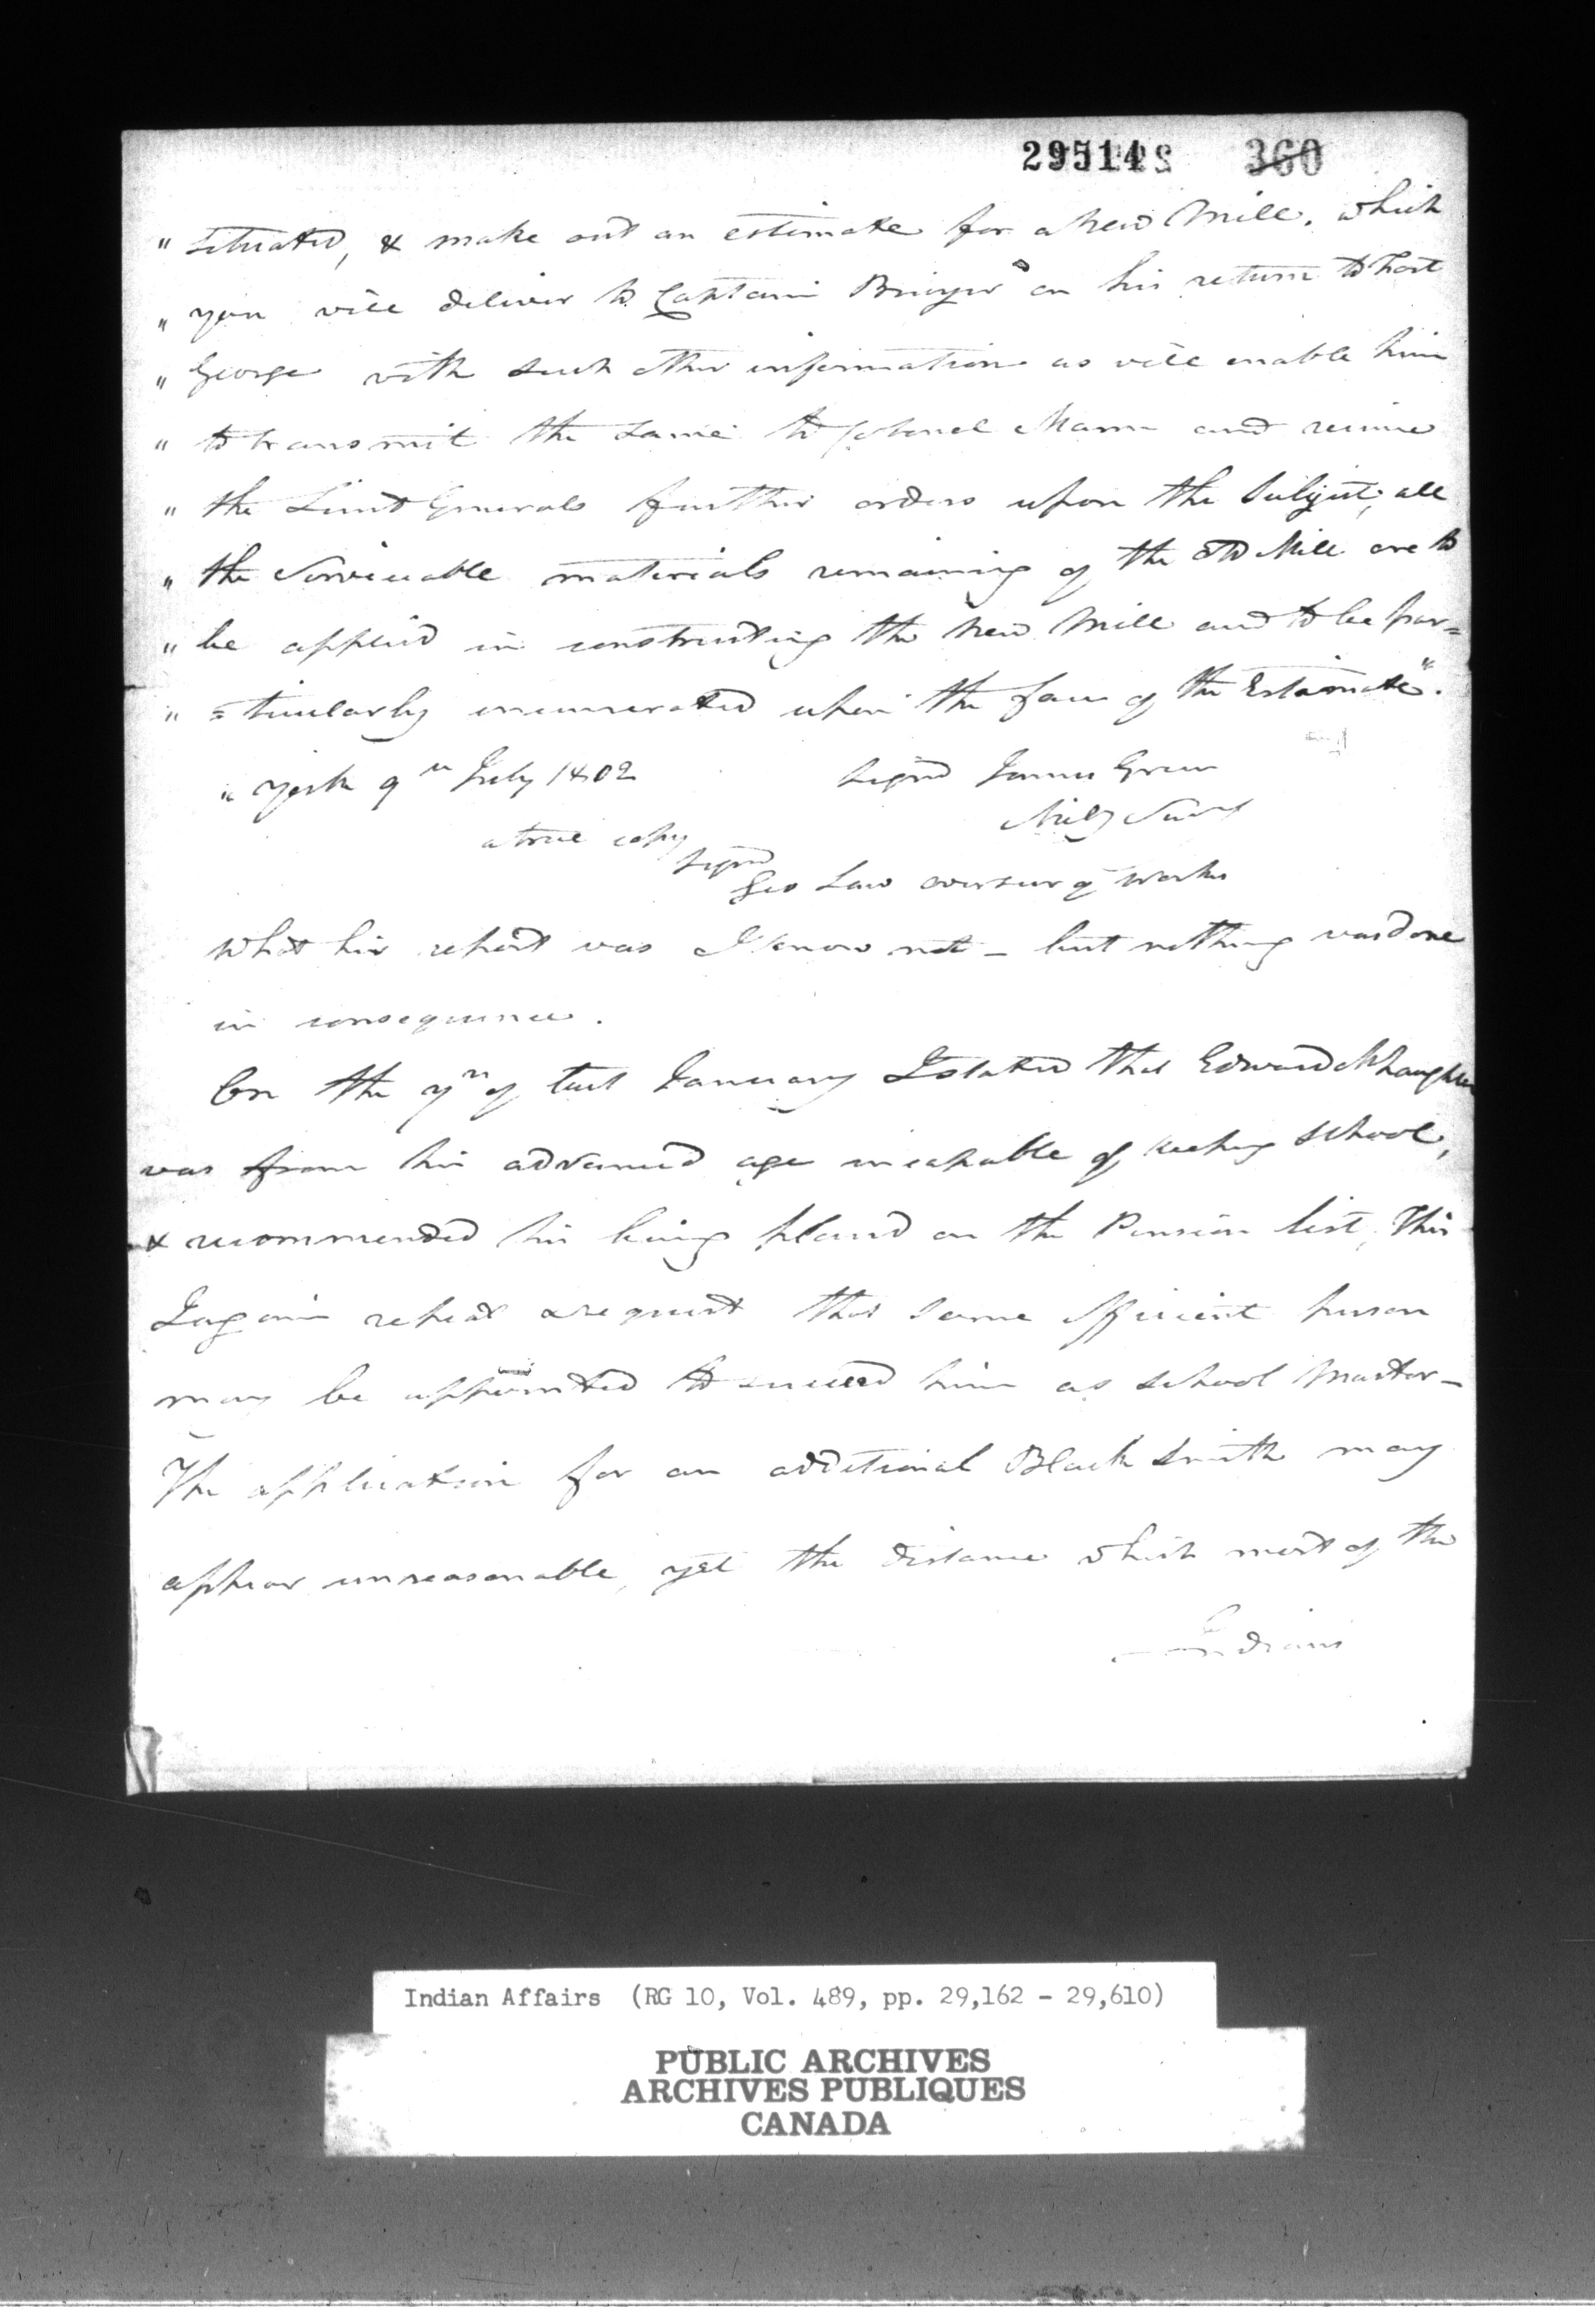 29514 360
" situated, & make out an estimate for a new Mill, which
" you will deliver to Captain on his return to Fort
" George with such other information as will enable him
" to transmit the same to Colonel Mann and receive
" the Lieut Generals further orders upon the subject, all
" the Serviceable materials remaining of the old Mill are to
" be applied in constructing the new Mill and to be par=
" =ticularly enumerated upon the face of the Estimate".
" York 9th July 1802 signd James Green
Mily Secy
a true copy
signd
Geo Law overseer of works
What his report was I know not – but nothing was done
in consequence.
On the 7th of last January I stated that Edward
was from his advanced age incapable of keeping school,
& recommended his being placed on the Pension list, This
I again repeat & request that some efficient person
may be appointed to succeed him as school master –
The application for an additional Black Smith may
appear unreasonable, yet the distance which most of the
Indians
Indian Affairs (RG 10, Vol. 489, pp. 29,162 - 29,610)
PUBLIC ARCHIVES
ARCHIVES PUBLIQUES
CANADA